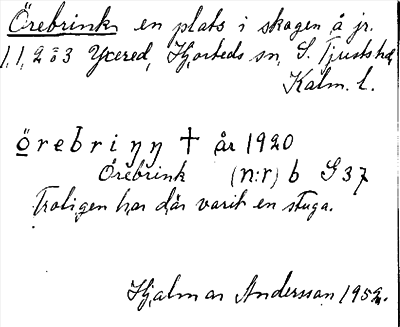 Örebrink en plats i skogen å jr.
1,1,2 o 3 Yxered, Hjorteds sn, S. Tjusts hd
Kalm. l.
örebriŋŋ † år 1920
Örebrink (n:r) b S 37
Troligen har där varit en stuga.
Hjalmar Andersson 1952.